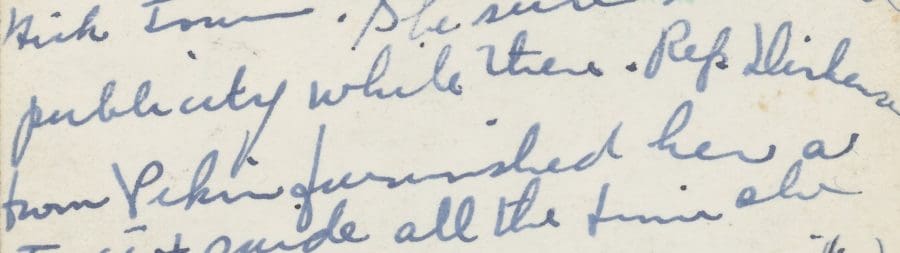 Hick Town. She sure
publicity while there. Rep. Dirksen
from Pekin furnished her a
guide all the time she